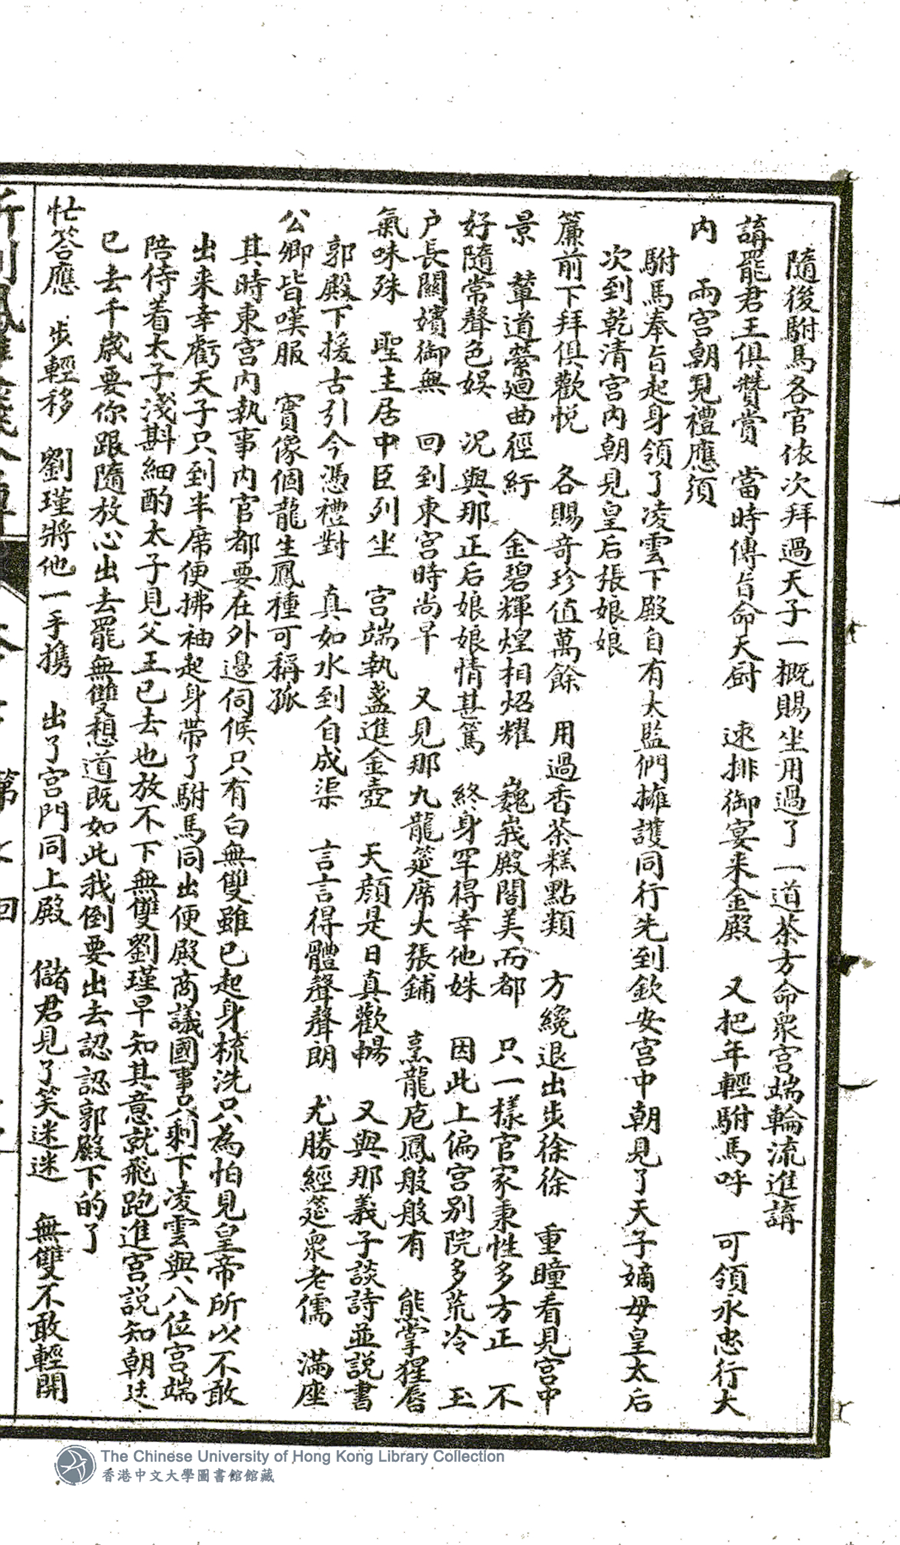 隨後駙馬各官依次拜過天子一概賜坐用過了一道茶方命衆宮端輪流進講
講罷君王俱贊賞　當時傳旨命天厨　速排御宴來金殿　又把年輕駙馬呼　可領永忠行大
內　兩宮朝見禮應須
駙馬奉旨起身領了凌雲下殿自有太監們擁護同行先到欽安宮中朝見了天子嫡母皇太后
次到乾清宮內朝見皇后張娘娘
簾前下拜俱歡悦　各賜奇珍值萬餘　用過香茶糕點類　方纔退出步徐徐　重瞳看見宮中
景　輦道縈迴曲徑紆　金碧輝煌相炤耀　巍峩殿閣美而都　只一樣官家秉性多方正　不
好隨常聲色娛　况與那正后娘娘情甚篤　終身罕得幸他姝　因此上偏宮别院多荒冷　玉
户長關嬪御無　回到東宮時尚早　又見那九龍筵席大張鋪　烹龍庖鳳般般有　熊掌猩唇
氣味殊　聖主居中臣列坐　宮端執盞進金壺　天顏是日真歡暢　又與那義子談詩並説書
郭殿下援古引今憑禮對　真如水到自成渠　言言得體聲聲朗　尤勝經筵衆老儒　滿座
公卿皆嘆服　實像個龍生鳳種可稱孤
其時東宮內執事內官都要在外邊伺候只有白無雙雖已起身梳洗只為怕見皇帝所以不敢
出來幸虧天子只到半席便拂袖起身帶了駙馬同出便殿商議國事只剩下凌雲與八位宮端
陪侍着太子淺斟細酌太子見父王已去也放不下無雙劉瑾早知其意就飛跑進宮説知朝廷
已去千歲要你跟隨放心出去罷無雙想道既如此我倒要出去認認郭殿下的了
忙答應　步輕移　劉瑾將他一手携　出了宮門同上殿　儲君見了笑迷迷　無雙不敢輕開
第七回